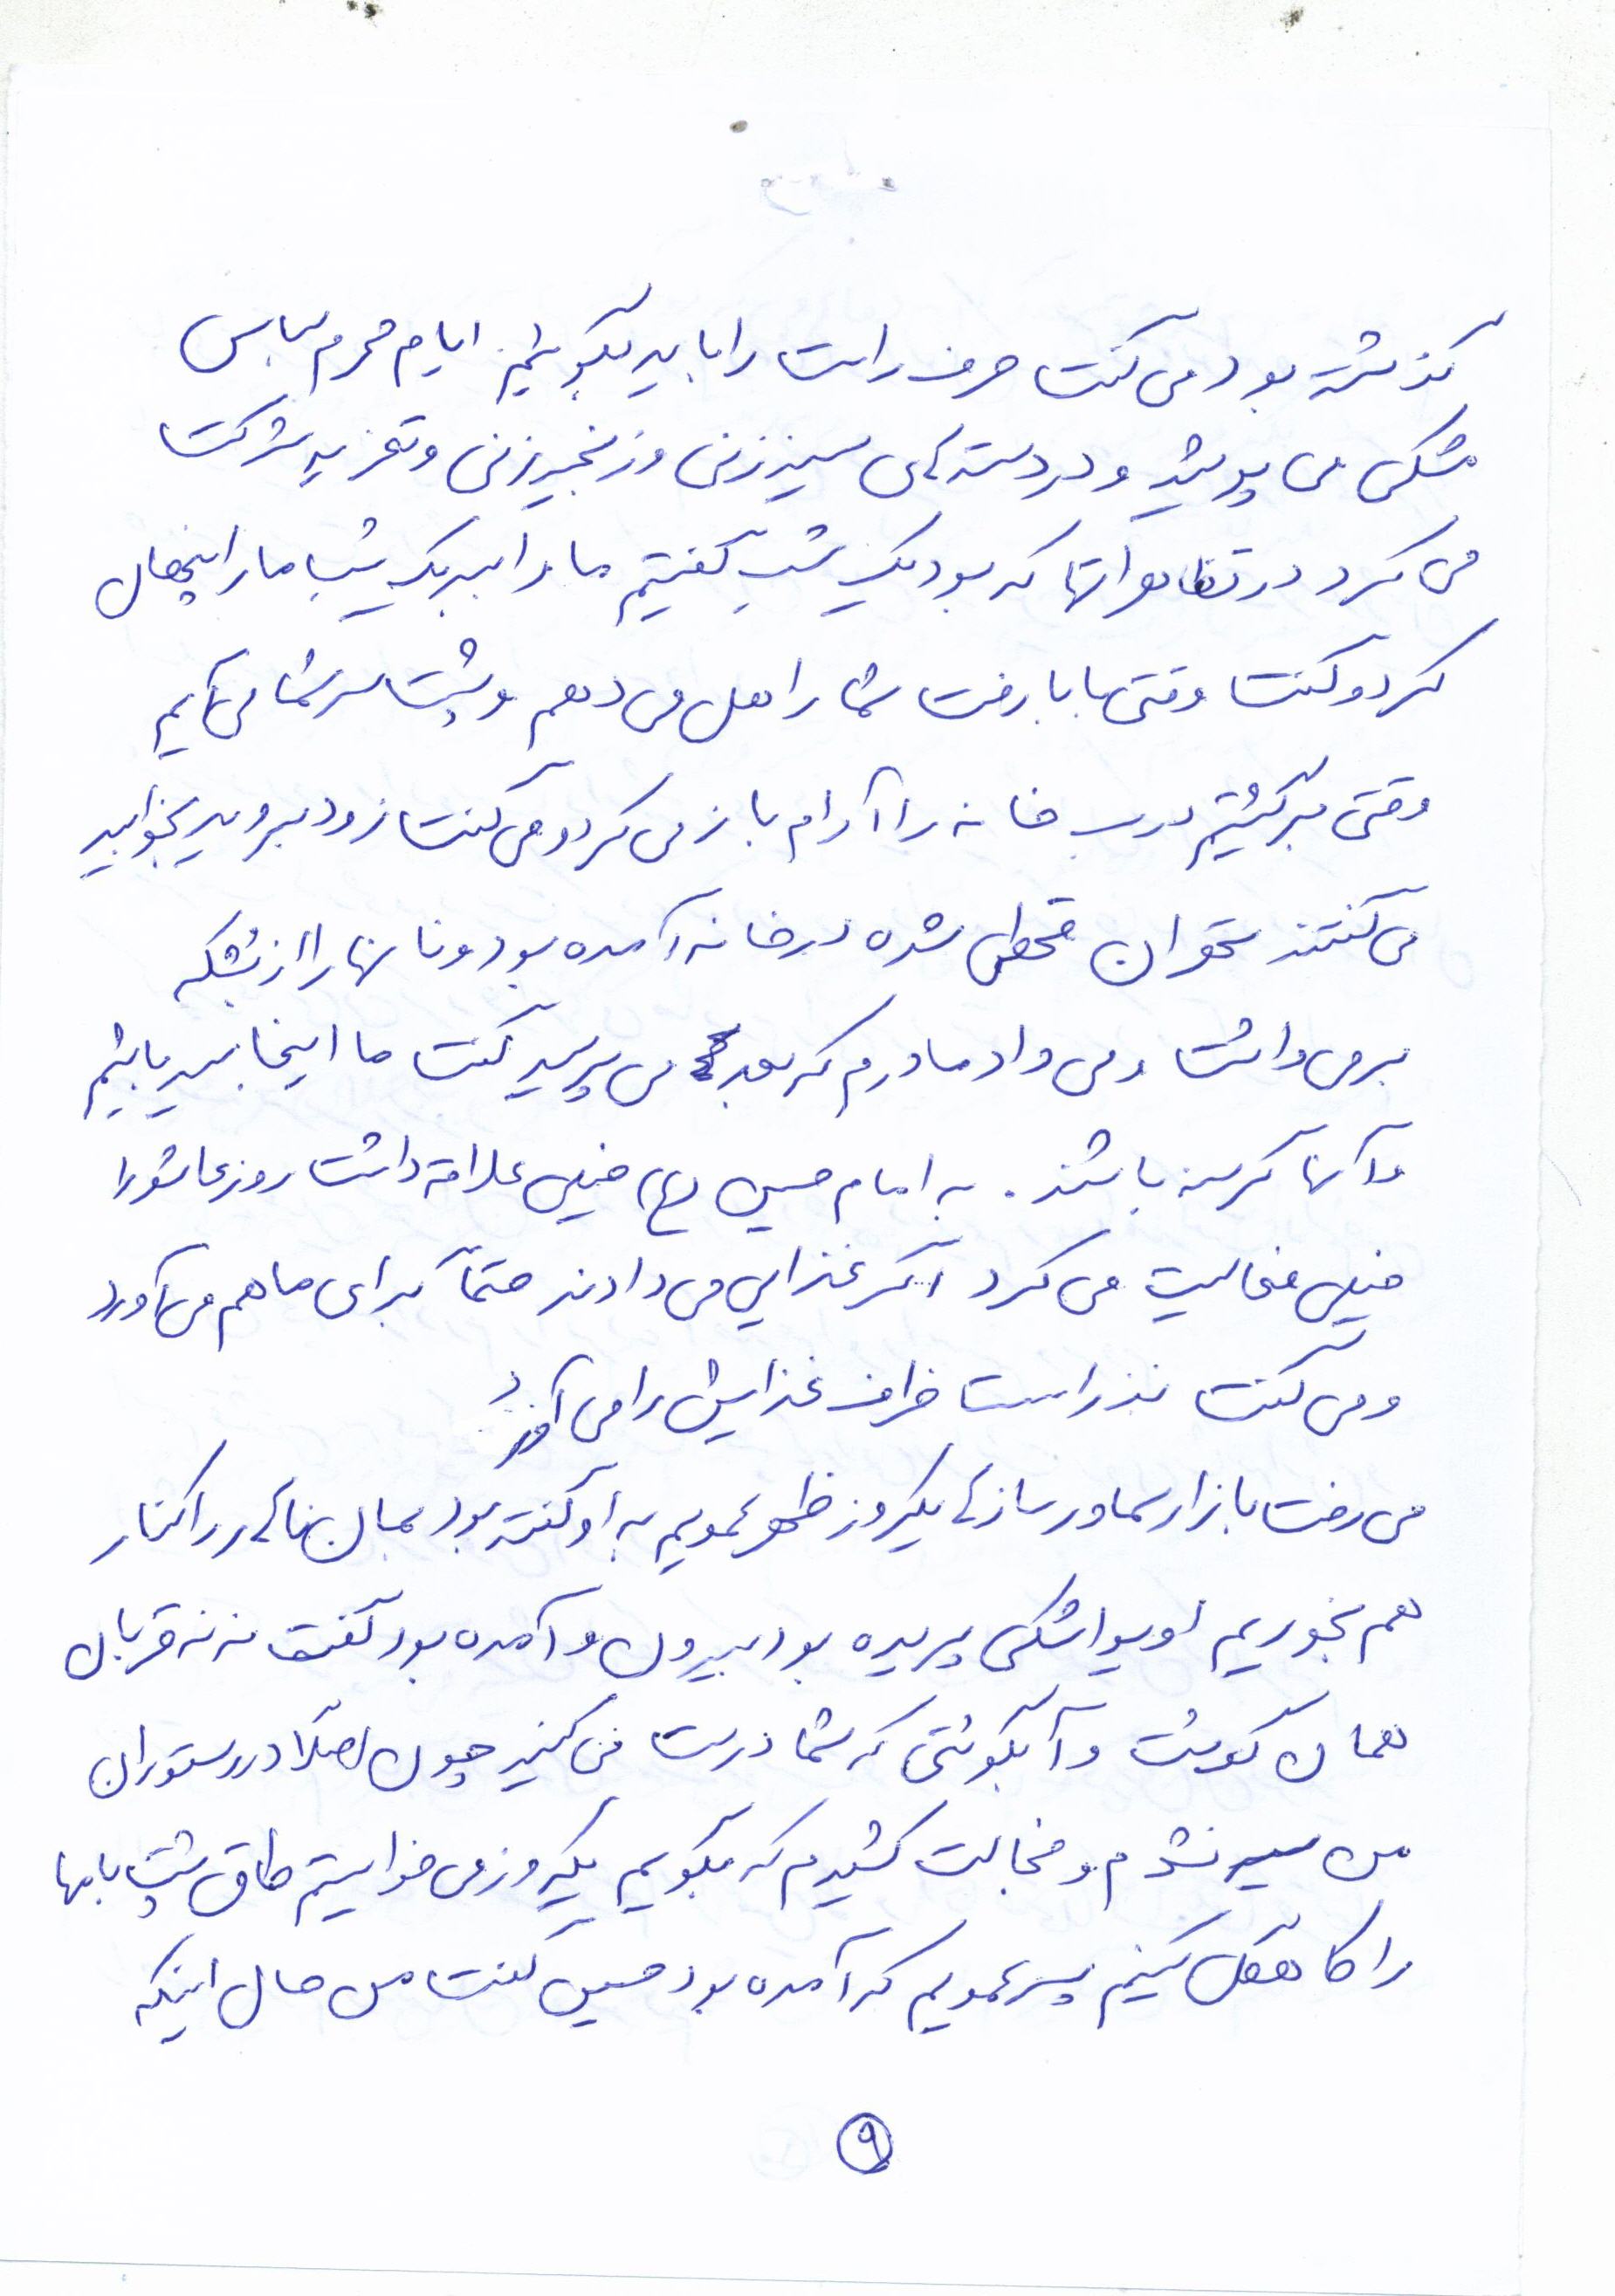 گذشته بود می گفت حرف راست را باید بگوئیم. ایام محرم لباس
مشکی می پوشید و در دسته های سینه زنی و زنجیرزنی و تعزیه شرکت
می کرد در تظاهراتها که بود یک شب گفتیم ما را ببر یک شب ما را اینجال
کرد و گفت وقتی بابا رفت شما را هل می دهم و پشت سر شما می آیم
وقتی برگشتیم درب خانه را آرام باز می کرد و می گفت زود بروید بخوابید
می گفتند تهران قحطی شده در خانه آمده بود و نانها را از بشکه
برمی داشت و می داد مادرم که بعد می پرسید گفت ما اینجا سیر باشیم
و آنها گرسنه باشند. به امام حسین (ع) خیلی علاقه داشت روز عاشورا
خیلی فعالیت می کرد اگر غذایی می دادند حتماً برای ما هم می آورد
و می گفت نذر است ظرف غذایش را می آورد
می رفت بازار سماور سازها یکروز ظهر عمویم به او گفته بود بمان ناهار را کنار
هم بخوریم او یواشکی پریده بود بیرون و آمده بود گفت نه نه قربان
همان گوشت و آبگوشتی که شما درست می کنید چون اصلاً در رستوران
من سیر نشدم و خجالت کشیدم که بگویم یکروز می خواستیم طاق پشت بامها
را کاهگل کنیم پسر عمویم که آمده بود حسین گفت من حال اینکه
۹